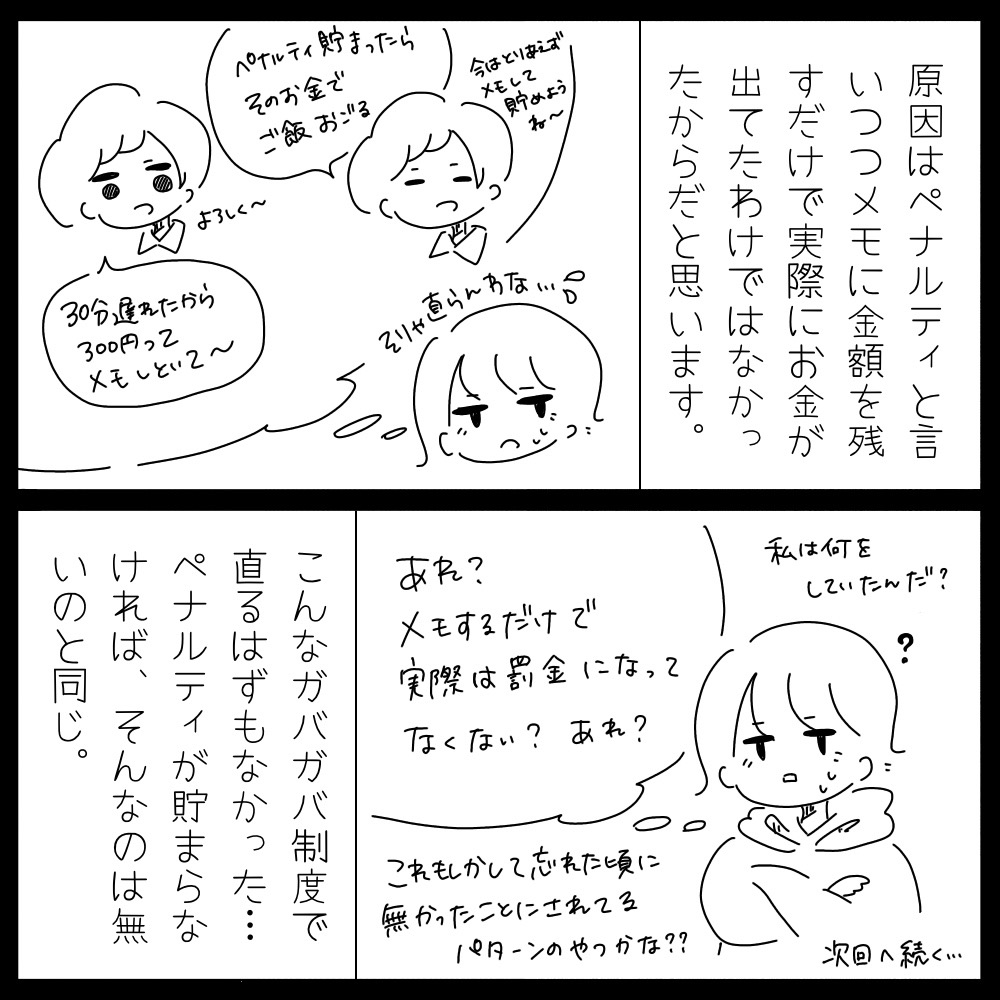 原因はペナルティと言
いつつメモに金額を残
すだけで実際にお金が
出てたわけではなかっ
たからだと思います。
今はとりあえず
メモして
貯めよう
ね〜
ペナルティ貯まったら
そのお金で
ご飯おごる
よろしく〜
30分遅れたから
300円って
メモしといて〜
そりゃ直らんわな…
私は何を
していたんだ?
?
あれ?
メモするだけで
実際は罰金になって
なくない? あれ?
これもしかして忘れた頃に
無かったことにされてる
パターンのやつかな??
次回へ続く…
こんなガバガバ制度で
直るはずもなかった…
ペナルティが貯まらな
ければ、そんなのは無
いのと同じ。